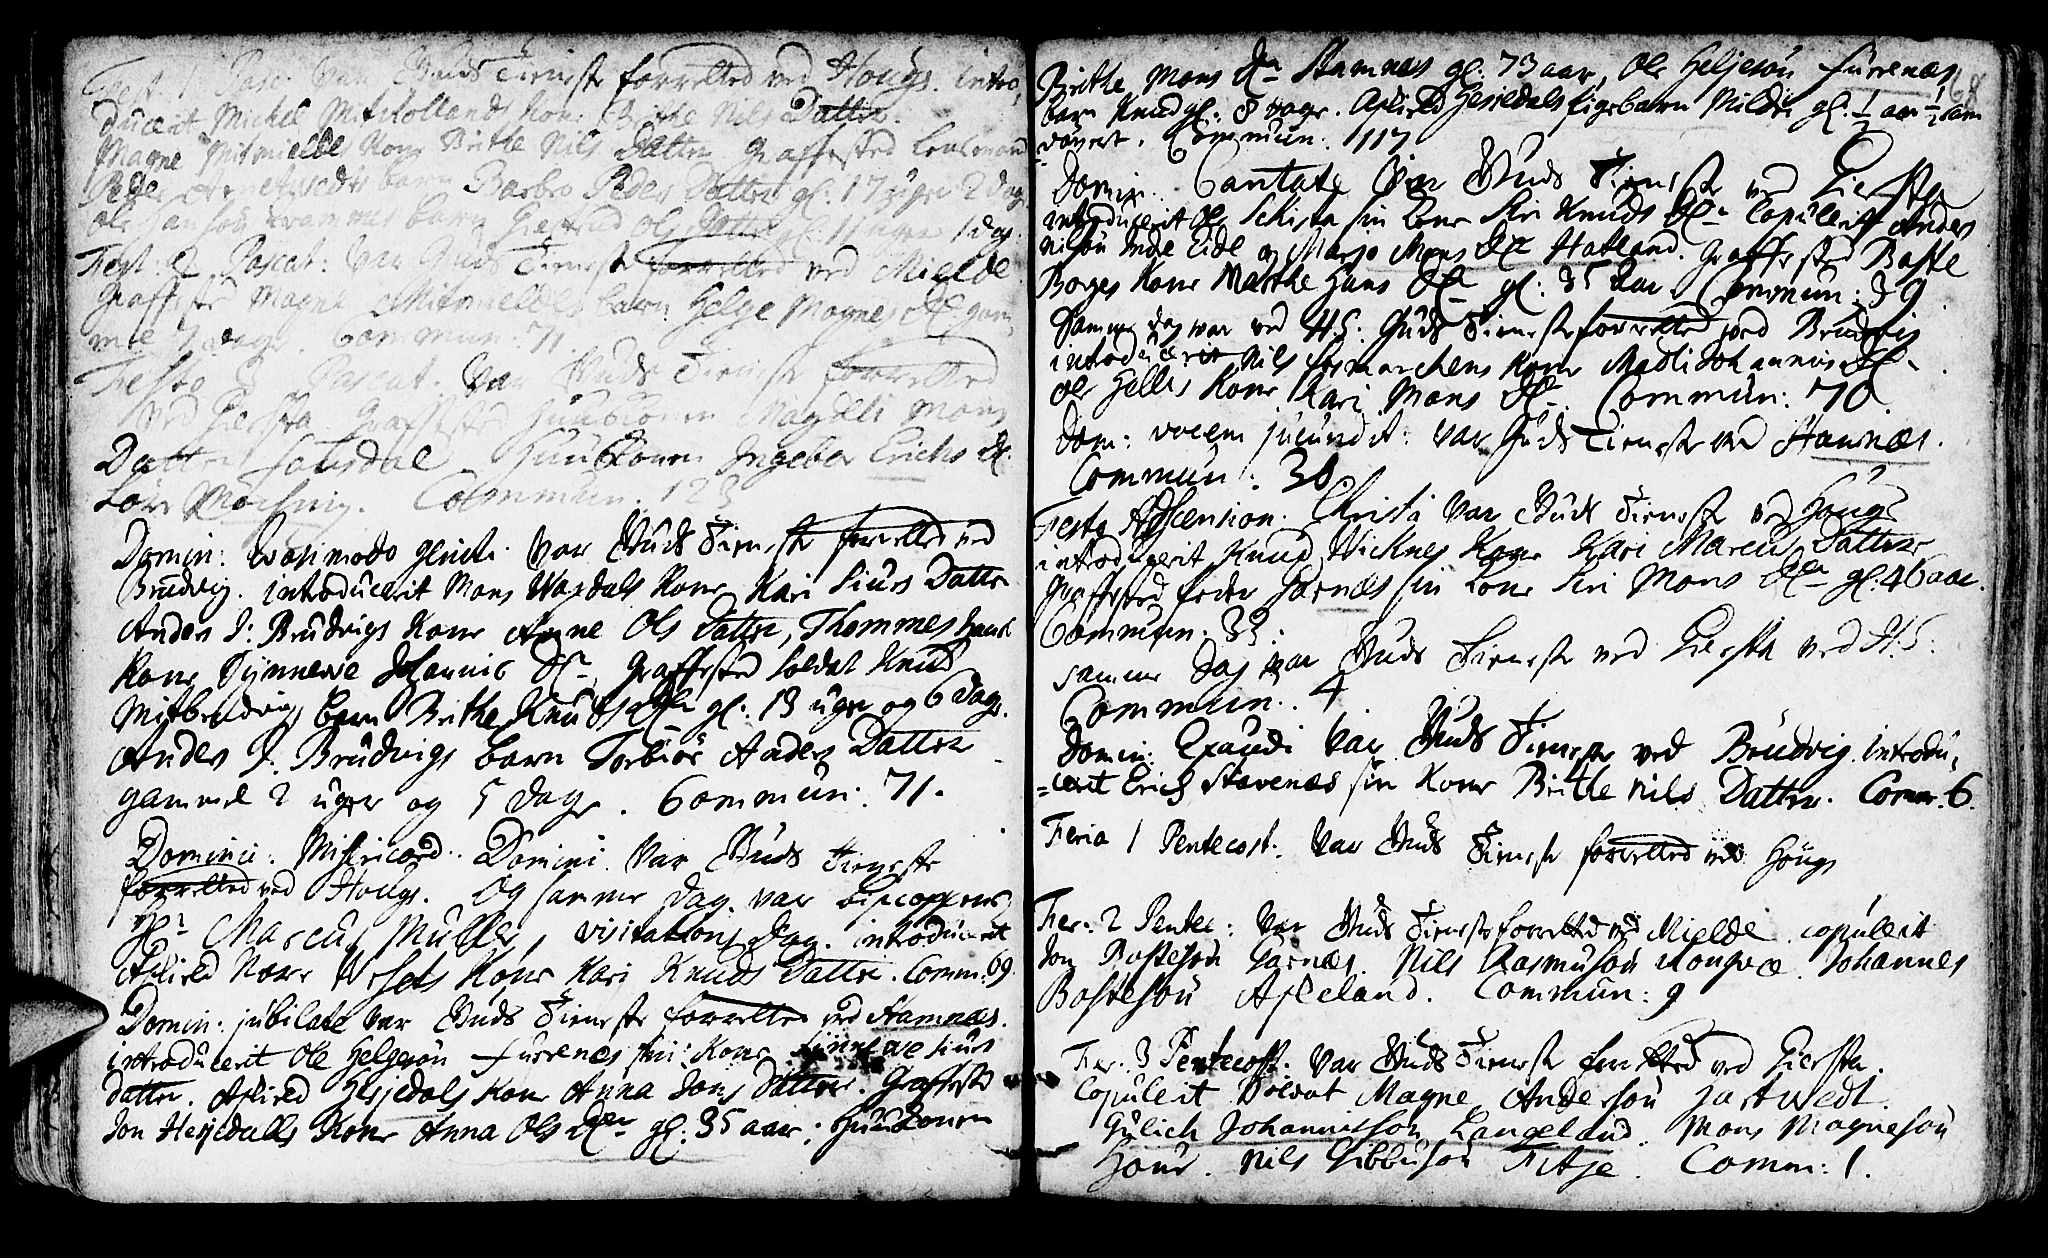 Fest. 1 Pasc: var Guds Tieneste forretted ved Hougs. intro,
ducerit Michel Mitskollands Kone Brithe Nils Datter.
Magne Mitmielde Kone Brithe Nils Datter Graffested Lensmand
Peder barn Barbro Peders Datter gl: 17 uger 2 dag
Ole Hansøn barn Giertrud Ols Datter gl. 11 uger 1 dag.
Fest: 2 Pascat: var Guds Tieneste forretted ved Mielde
Graffested Magne Mitmieldes barn Helge Magnes Dr gam,
mel 7 dage. Commun: 71.
Festo 3 Pascat: var Guds Tieneste forretted
ved Giersta. Grafsted Huuskonen Magdeli Mons
Datter Fosdal Huuskonen Ingebor Erichs Dr.
Commun. 123
Domin: Quasimodo geniti. var Guds Tieneste forretted ved
Brudvig. introducerit Mons Wapdals Kone Kari Siurs Datter
Anders I: Brudvigs Kone Anne Ols Datter, Thommes
Kone Synneve Johannis Dr. Graffested Soldat Knud
Mitbrudvigs barn Brithe Knuds Dr gl: 13 uger og 6 Dage.
Anders I: Brudvigs barn Torbiør Anders Datter
gammel 2 uger og 5 dage. Commun: 71.
Dominic: Misericord: Domini var Guds Tieneste
forretted ved Hougs. Og samme dag var Biscoppens
Hr Marcus Muller, visitations dag. introducerit
Aslied Nære Kone Kari Knuds Datter. Comm: 69.
Domin: jubilate var Guds Tieneste forretted ved Stamnæs.
introducerit Ole Helgesøn Furrenes sin Kone Sinneve Siurs
Datter. Aslied Hesjedals Kone Anna Jons Datter. Graffested
Jon Hesjedalls Kone Anna Ols Dr gl: 35 aar; Huuskonen
Brithe Mons Dr Stamnæs gl: 73 aar, Ole Heljesøn Furrenæs
barn Knud gl: 8 dage. Aslied Hesjedals pigebarn Nilde gl. 1/2 aar
døpert. Commun: 117
Domin. Cantate var Guds Tieneste ved Giersta
introducerit Ole Sekista sin Kone Siri Knuds Dr. Copulerit Anders
Nilsøn Inde Eide og Margo Mons Dr Hatland. Graffested Baste
Borges Kone Marthe Hans Dr gl: 35 aar. Commun: 39
Samme dag var ved H.S. Guds Tieneste forretted ved Brudvig
introducerit Nils Formarchens Kone Madli Johannis Dr.
Ole Gellis Kone Kari Mons Dr. Commun: 70.
Dom: vocem jucundit: var Guds Tieneste ved Stamnæs.
Commun: 30
Festo Ascension. Christi var Guds Tieneste ved Hougs
introducerit Knud Wicknes Kone Kari Marcus Datter
Graffested Peder Garnæs sin Kone Siri Mons Dr gl: 46 aar.
Commun: 33.
samme Dag var Guds Tieneste ved Giersta ved H.S.
Commun: 4
Domin: Exaudi var Guds Tieneste ved Brudvig. introdu,
cerit Erich Stavenæs sin Kone Brithe Nils Datter. Comm. 6.
Feria 1 Pentecost: var Guds Tieneste forretted ved Hougs
Fer: 2 Pentec: var Guds Tieneste forretted ved Mielde. copulerit
Jon Bastesøn Garnæs. Nils Rasmusøn Johannes
Bastesøn Asheland. Commun: 9
Fer: 3 Pentecost: var Guds Tieneste forretted ved Giersta.
Copulerit Soldat Magne Andersøn Hartwedt.
Gulich Johannissøn Langeland. Mons Magnesøn
Houe. Nils Gibbusøn Fitje. Comm: 1.